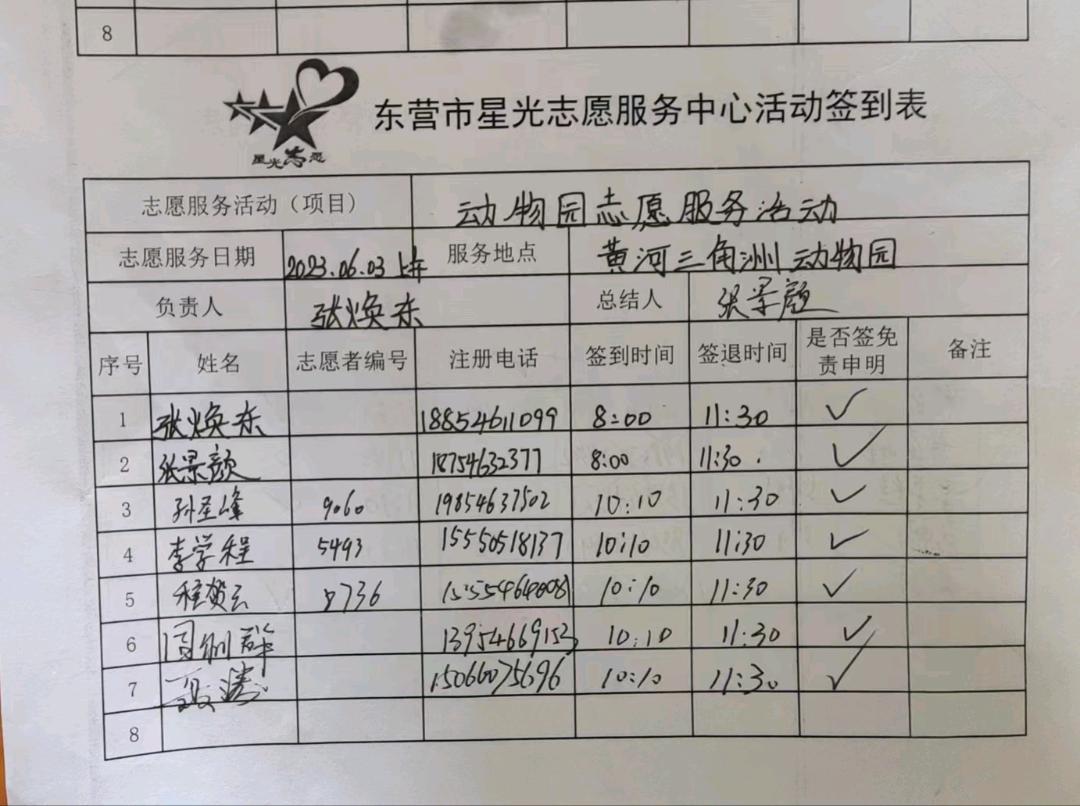 8
星光志愿
东营市星光志愿服务中心活动签到表
志愿服务活动（项目） 动物园志愿服务活动
志愿服务日期 2023.06.03 上午 服务地点 黄河三角洲动物园
负责人 张焕东 总结人 张景颜
序号 姓名 志愿者编号 注册电话 签到时间 签退时间 是否签免责申明 备注
1 张焕东 18854611099 8:00 11:30 ✓
2 张景颜 18754632377 8:00 11:30 ✓
3 孙圣峰 9060 19854637502 10:10 11:30 ✓
4 李学程 5493 15550518137 10:10 11:30 ✓
5 程贺云 8736 10:10 11:30 ✓
6 13954669153 10:10 11:30 ✓
7 15066075696 10:10 11:30 ✓
8